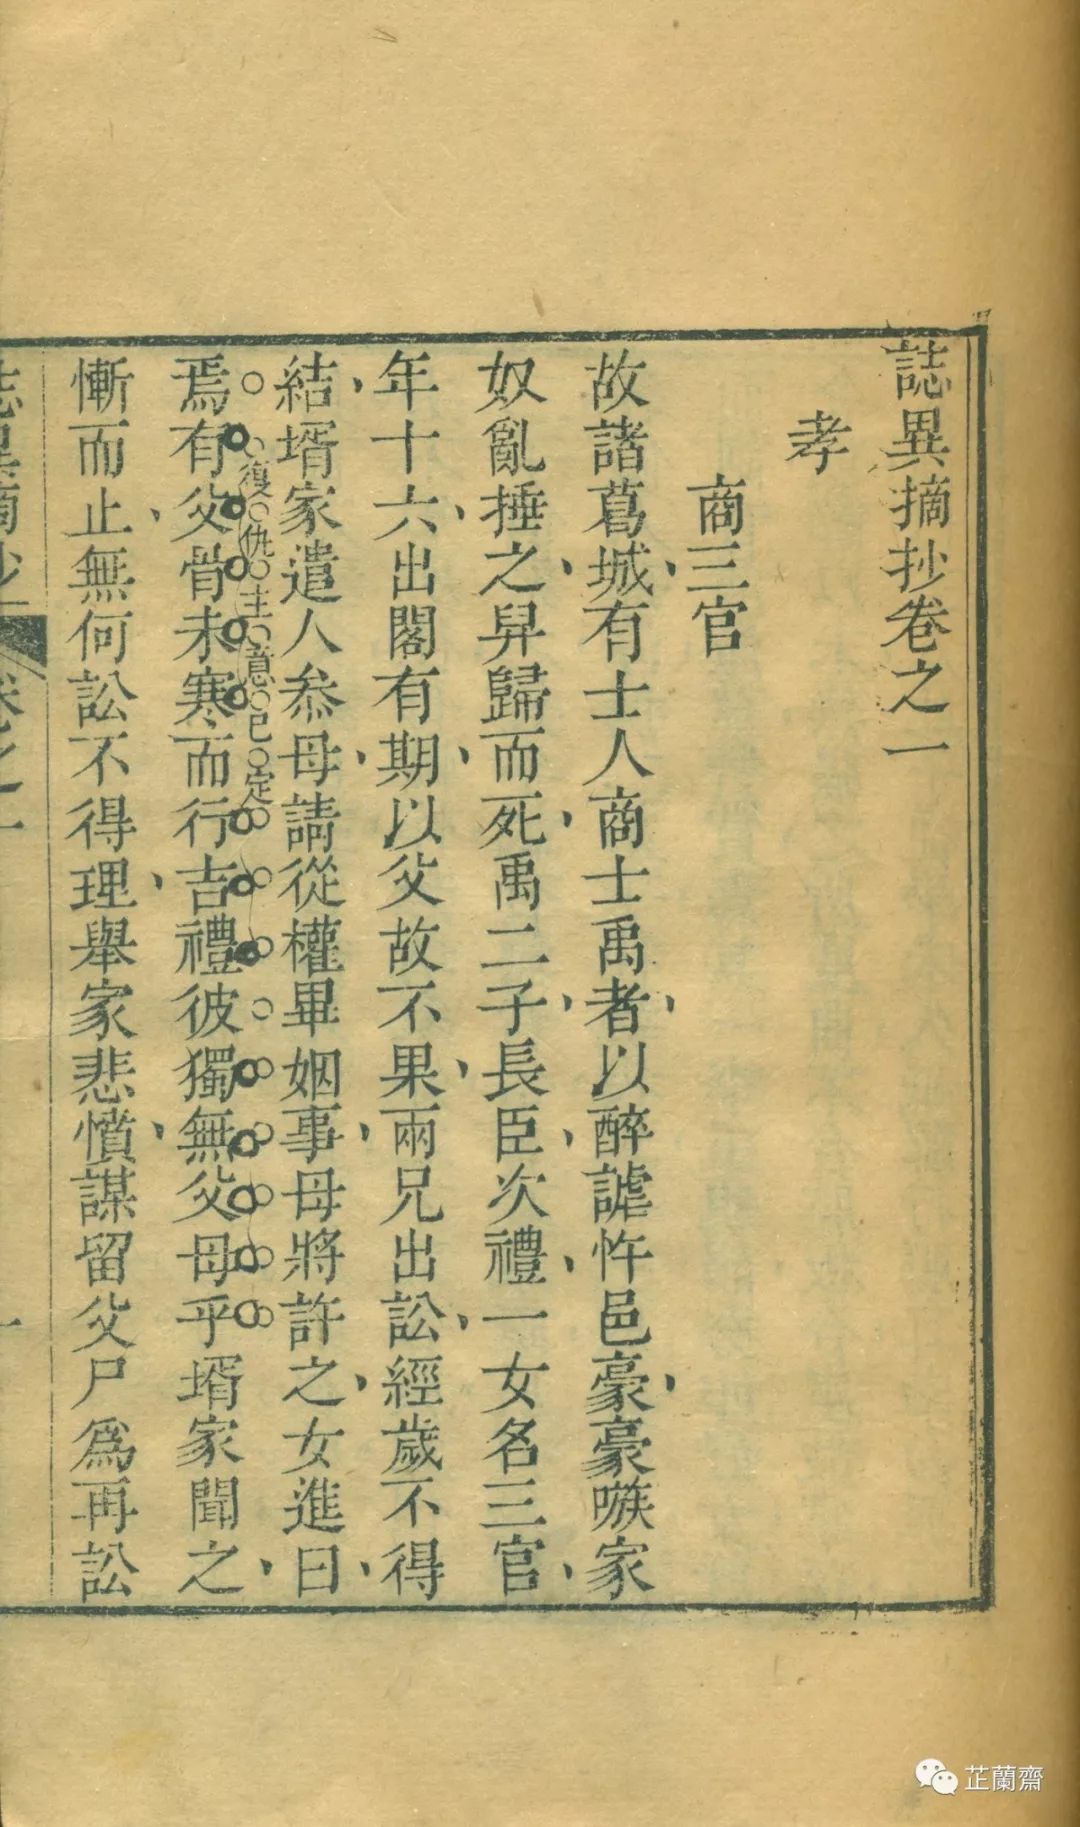 誌異摘抄卷之一
孝
商三官
故諸葛城有士人商士禹者以醉謔忤邑豪豪嗾家
奴亂捶之舁歸而死禹二子長臣次禮一女名三官
年十六出閣有期以父故不果兩兄出訟經歲不得
結壻家遣人叅母請從權畢姻事母將許之女進曰
復仇主意已定
焉有父骨未寒而行吉禮彼獨無父母乎壻家聞之
慚而止無何訟不得理舉家悲憤謀留父尸爲再訟
誌異摘抄 卷之一 一
芷蘭齋